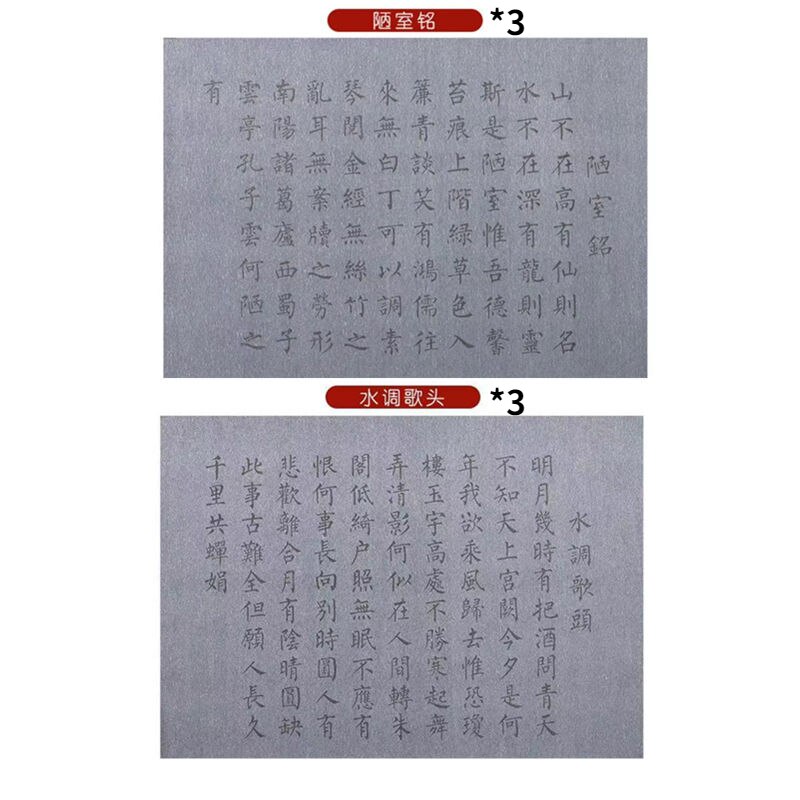 陋室铭 *3
陋室銘
山不在高有仙則名
水不在深有龍則靈
斯是陋室惟吾德馨
苔痕上階綠草色入
簾青談笑有鴻儒往
來無白丁可以調素
琴閱金經無絲竹之
亂耳無案牘之勞形
南陽諸葛廬西蜀子
雲亭孔子雲何陋之
有
水调歌头 *3
水調歌頭
明月幾時有把酒問青天
不知天上宮闕今夕是何
年我欲乘風歸去惟恐瓊
樓玉宇高處不勝寒起舞
弄清影何似在人間轉朱
閣低綺户照無眠不應有
恨何事長向別時圓人有
悲歡離合月有陰晴圓缺
此事古難全但願人長久
千里共蟬娟